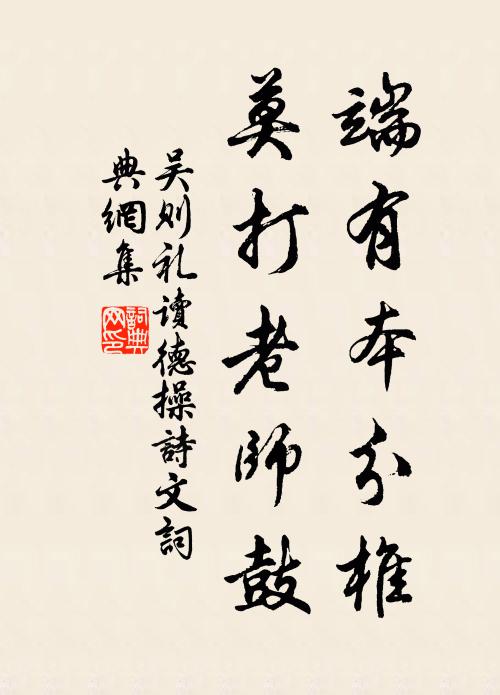 端有本分椎
莫打老師鼓
吴则礼讀德操詩文詞
典網集
詞典
网印